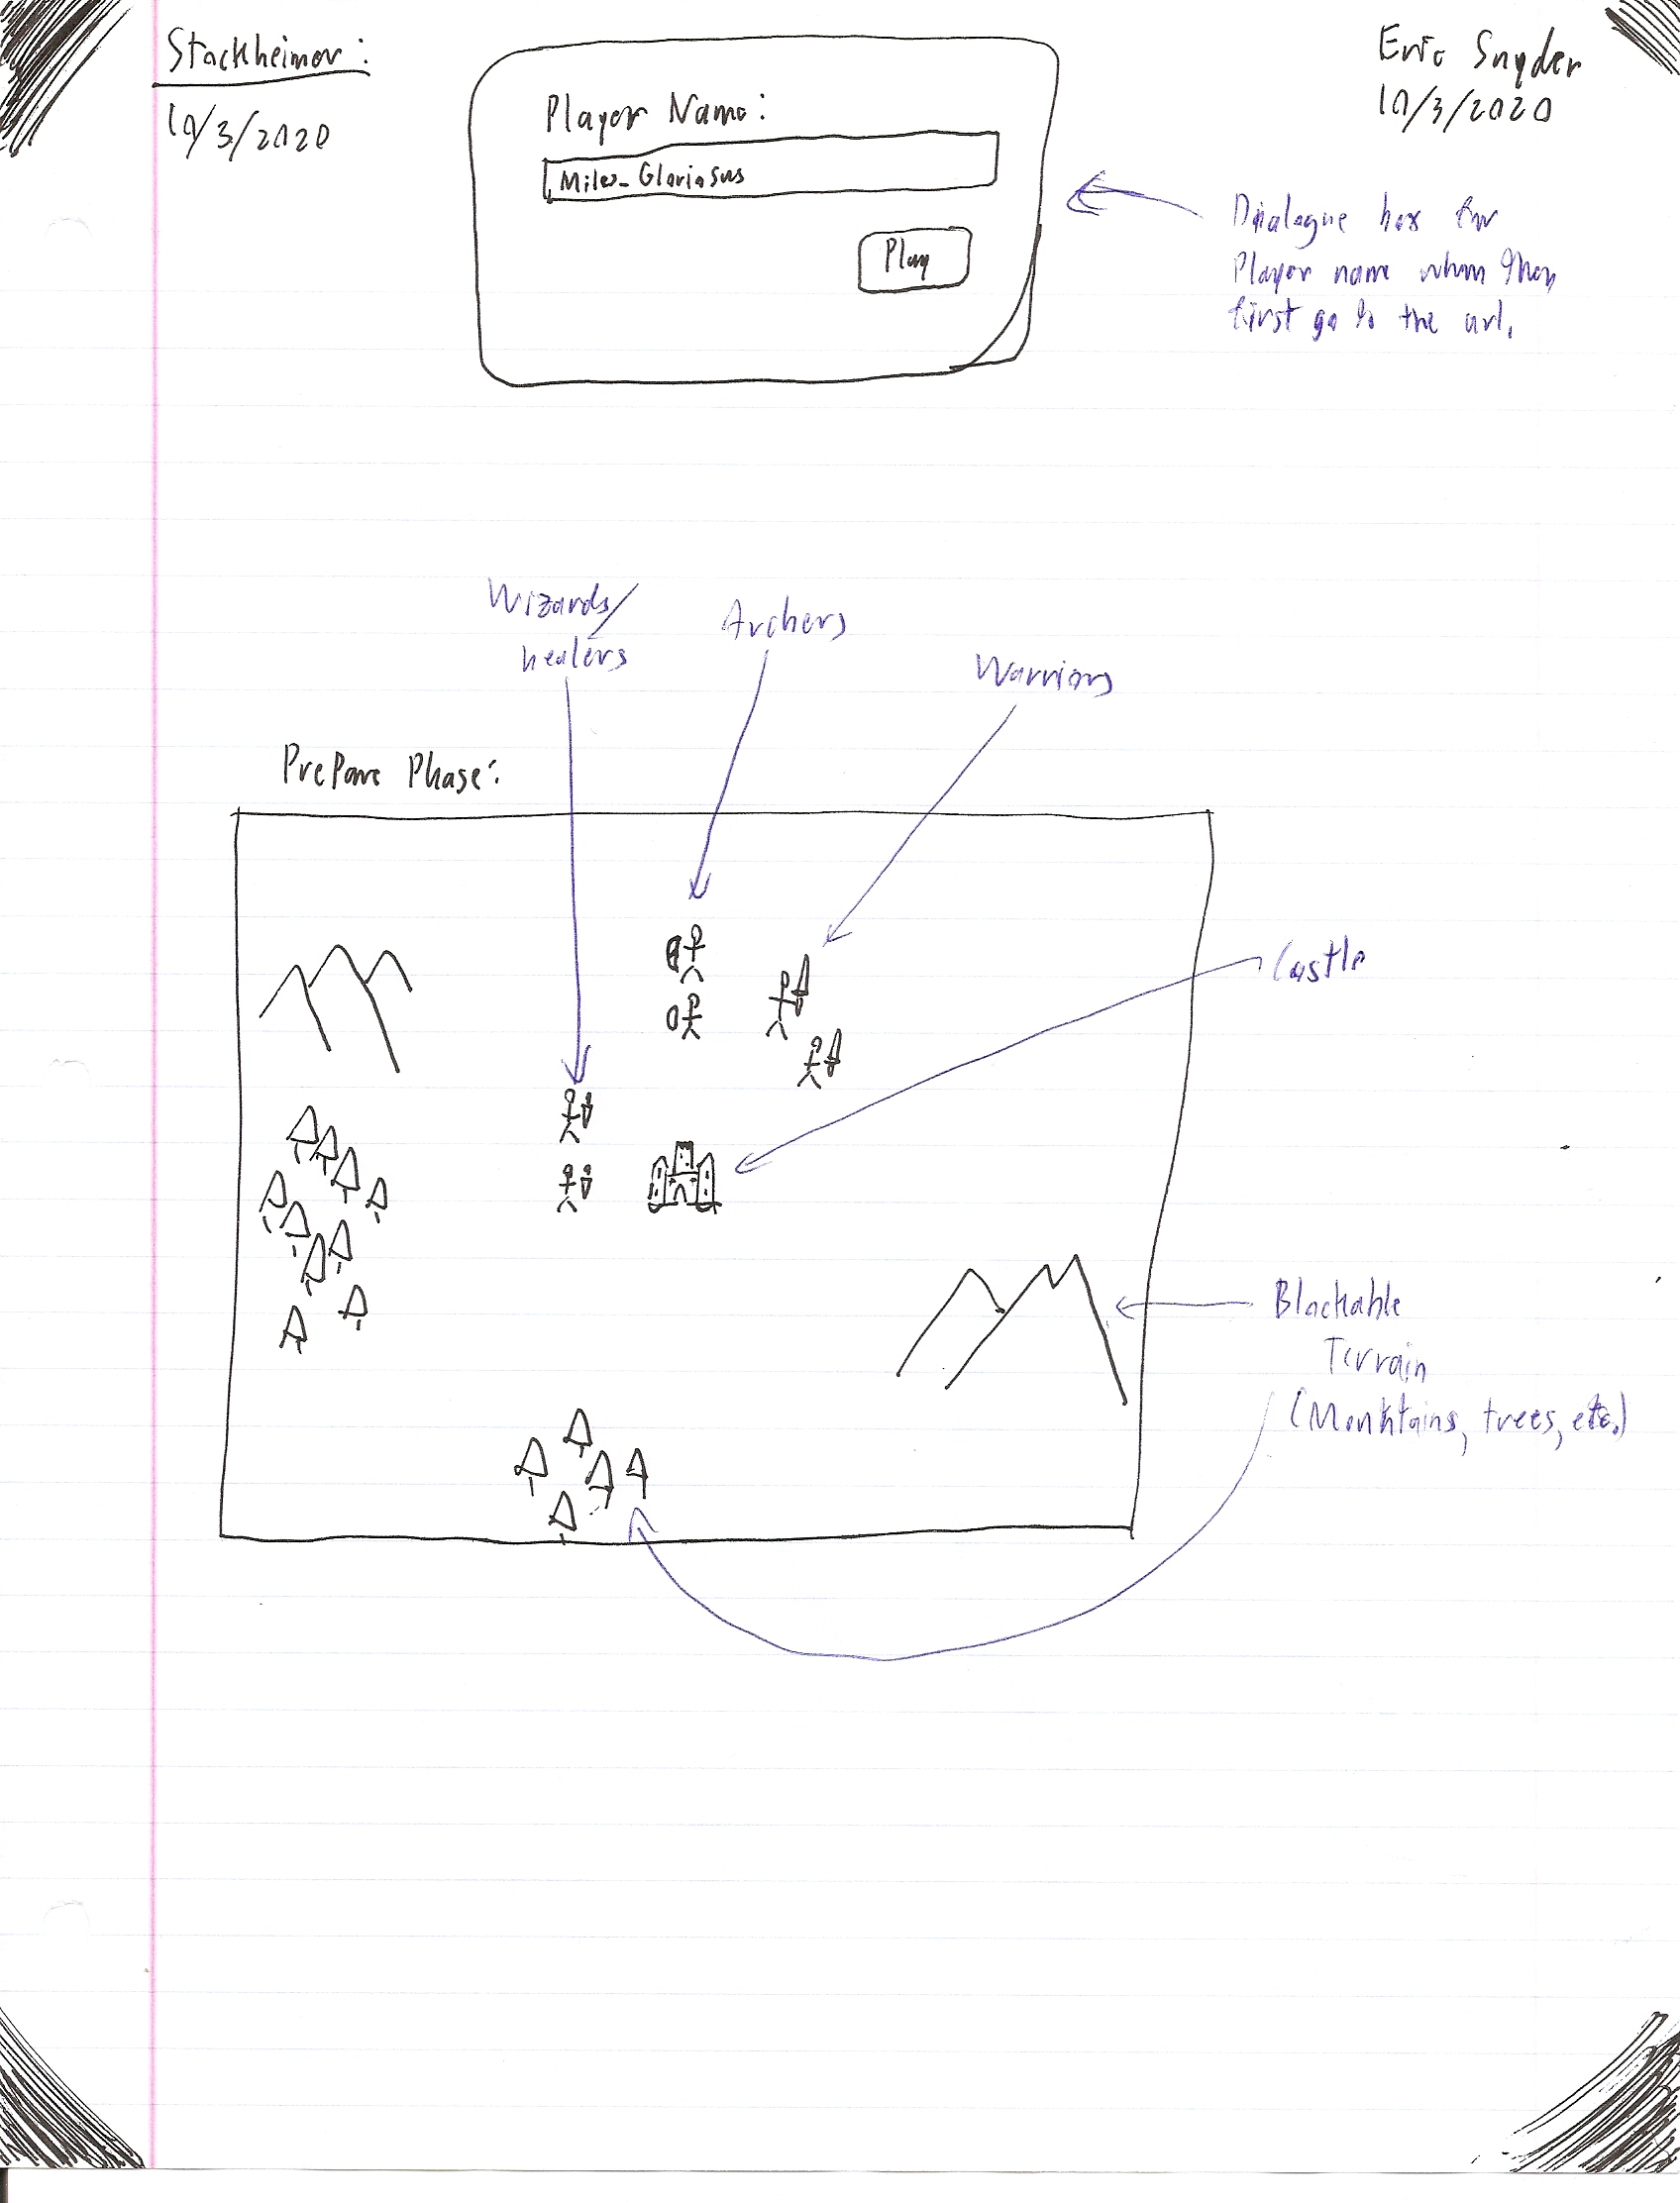 Stockheimer:
10/3/2020
Eric Snyder
10/3/2020
Player Name:
Miles_Gloriosus
Play
Dialogue box for
Player name when they
first go to the url.
Wizards/
healers
Archers
Warriors
Prepare Phase:
Castle
Blockable
Terrain
(Mountains, trees, etc.)